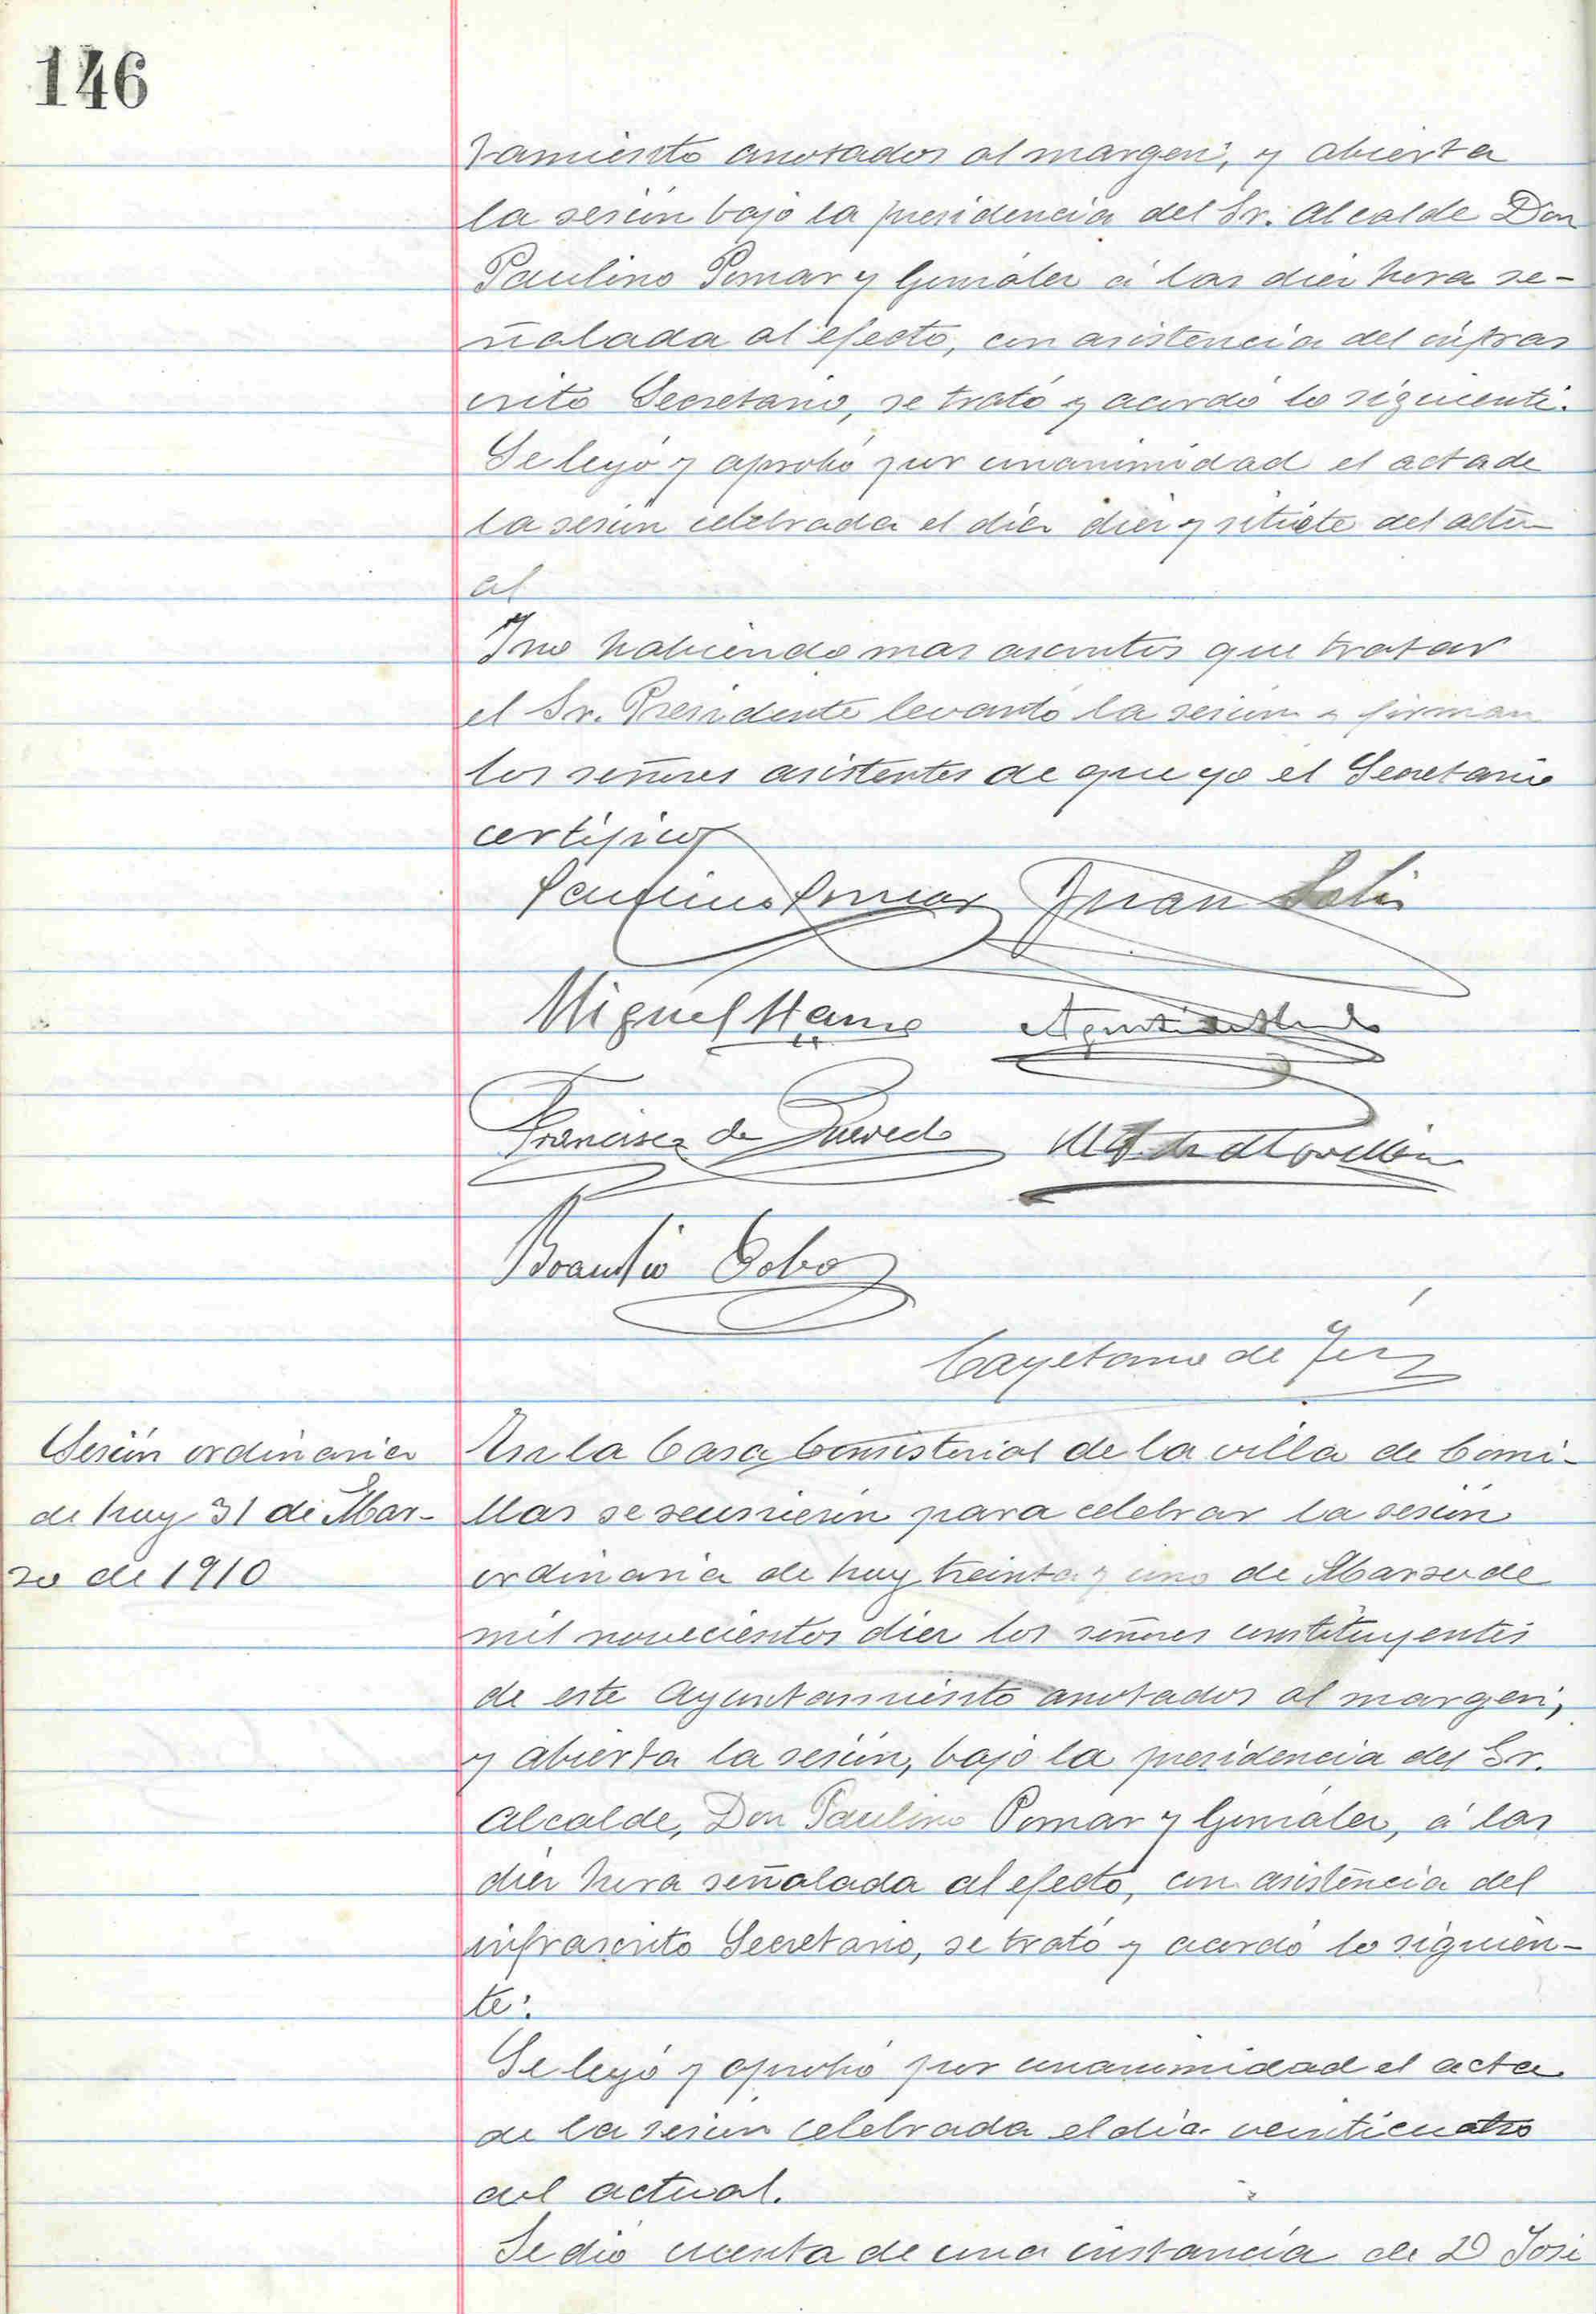 146
tamiento anotados al margen, y abierta
la sesión bajo la presidencia del Sr. Alcalde Don
Paulino Pomar y González á las diez hora se-
ñalada al efecto, con asistencia del infras
crito Secretario, se trató y acordó lo siguiente:
Se leyó y aprobó por unanimidad el acta de
la sesión celebrada el día diez y sitiete del actu-
al
Y no habiendo mas asuntos que tratar
el Sr. Presidente levantó la sesión y firman
los señores asistentes de que yo el Secretario
certifico
Paulino Pomar Juan Solis
Miguel
Francisco de Quevedo
Braulio Cobo
Cayetano de
Sesión ordinaria
de hoy 31 de Mar-
zo de 1910
En la Casa Consistorial de la villa de Comi-
llas se reunierón para celebrar la sesión
ordinaria de hoy treinta y uno de Marzo de
mil novecientos diez los señores constituyentes
de este Ayuntamiento anotados al margen,
y abierta la sesión, bajo la presidencia del Sr.
Alcalde, Don Paulino Pomar y González, á las
diez hora señalada al efecto, con asistencia del
infrascrito Secretario, se trató y acordó lo siguien-
te:
Se leyó y aprobó por unanimidad el acta
de la sesión celebrada el día veinticuatro
del actual.
Se dió cuenta de una instancia de D José